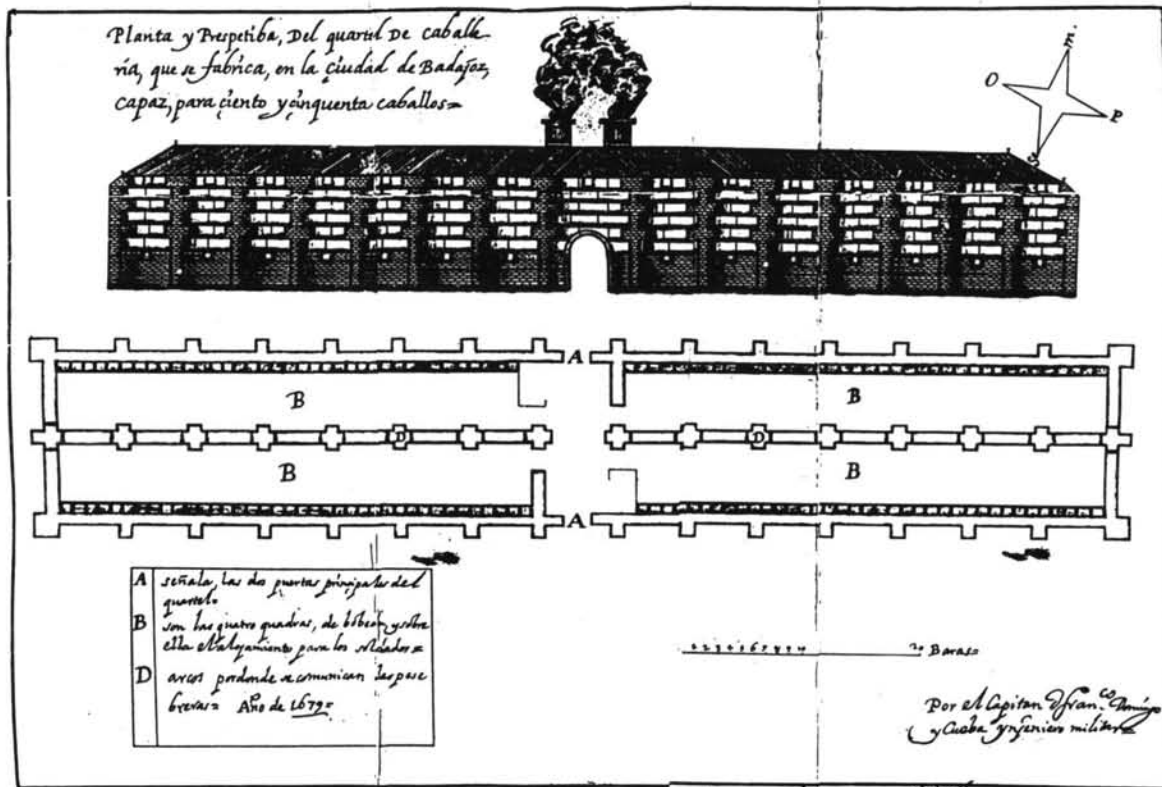 Planta y Prespetiba, Del quartel De caballe-
ria, que se fabrica, en la çiudad de Badajoz,
capaz, para çiento y çinquenta caballos=
m.
O
P
S
A
B
B
D
D
B
B
A
A señala, las dos puertas prinçipales del
quartel.
B son las quatro quadras, de bobeda, y sobre
ella el alojamiento para los soldados=
D arcos por donde se comunican las pese
breras= Año de 1679=
20 Baras=
Por el Capitan D fran.co Domingo
y Cueba ynjeniero militar=